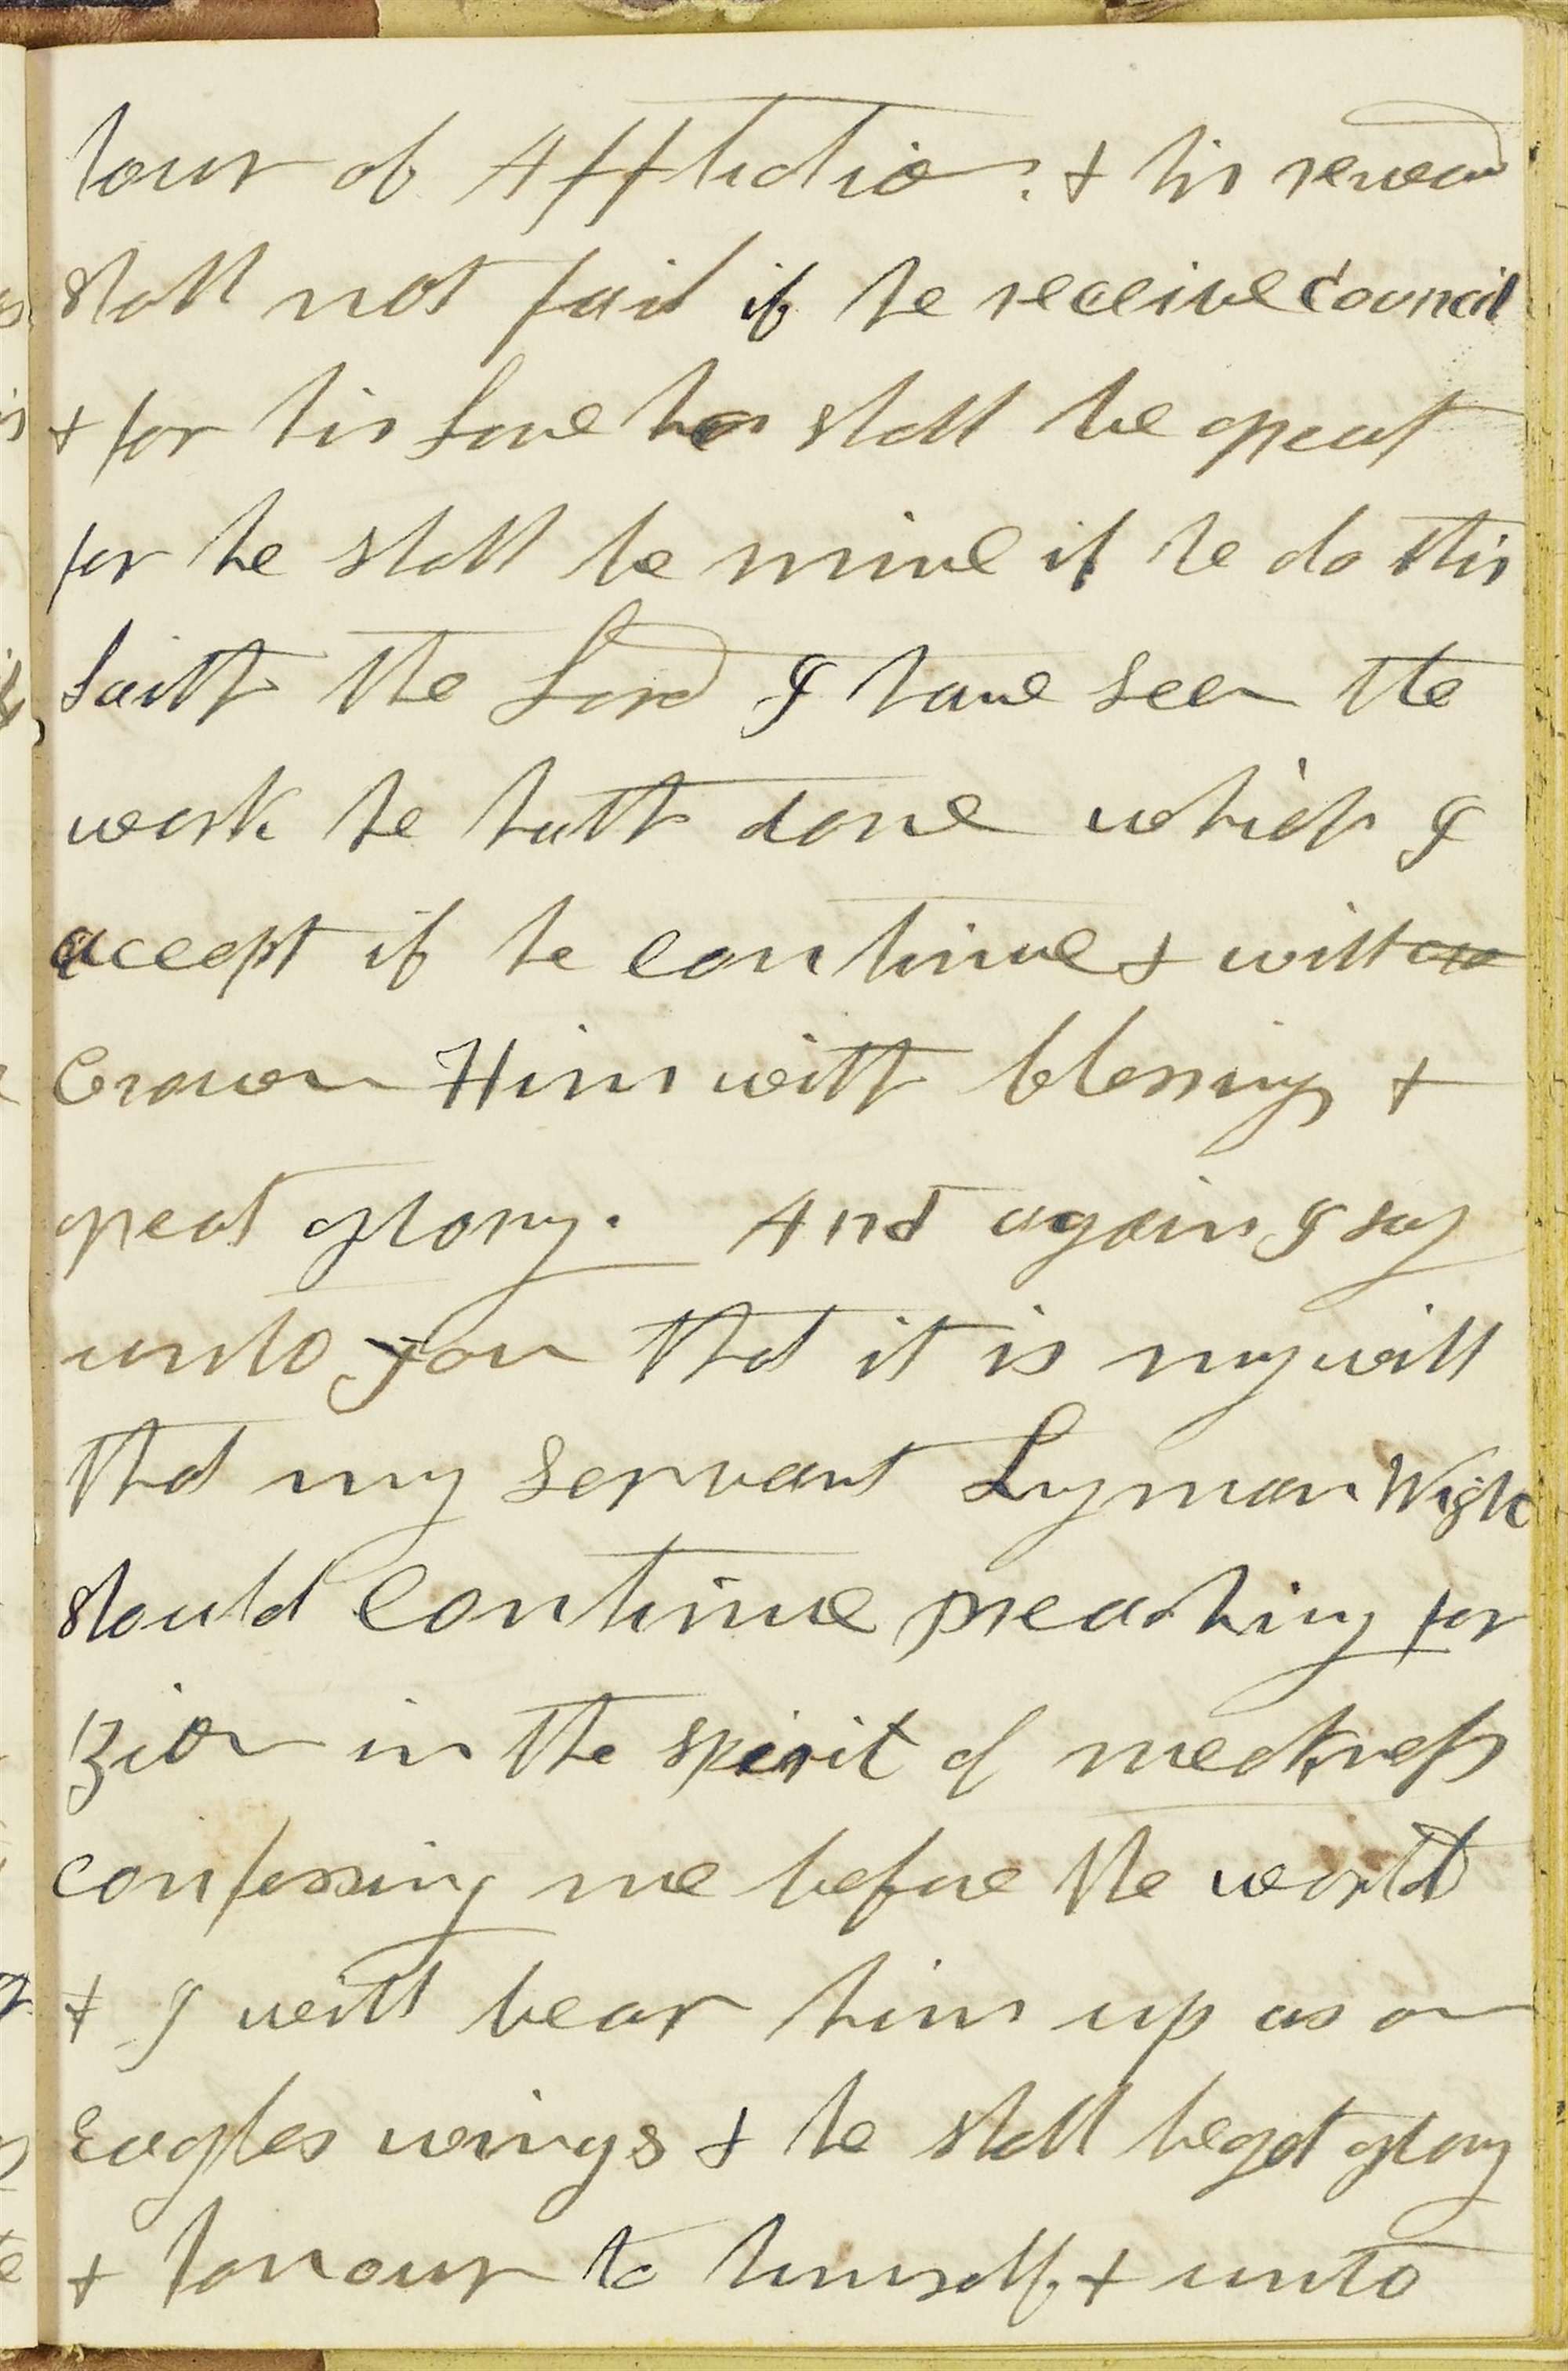 hour of Affliction & his reward
shall not fail if he receive Council
& for his Love he shall be great
for he shall be mine if he do this
Saith the Lord I have seen the
work he hath done which I
accept if he continue & will
Crown Him with blessings &
great glory. And again I say
unto you that it is my will
that my servant Lyman Wight
should Continue preaching for
Zion in the spirit of meekness
confessing me before the world
& I will bear him up as on
Eagles wings & he shall beget glory
& honour to himself & unto